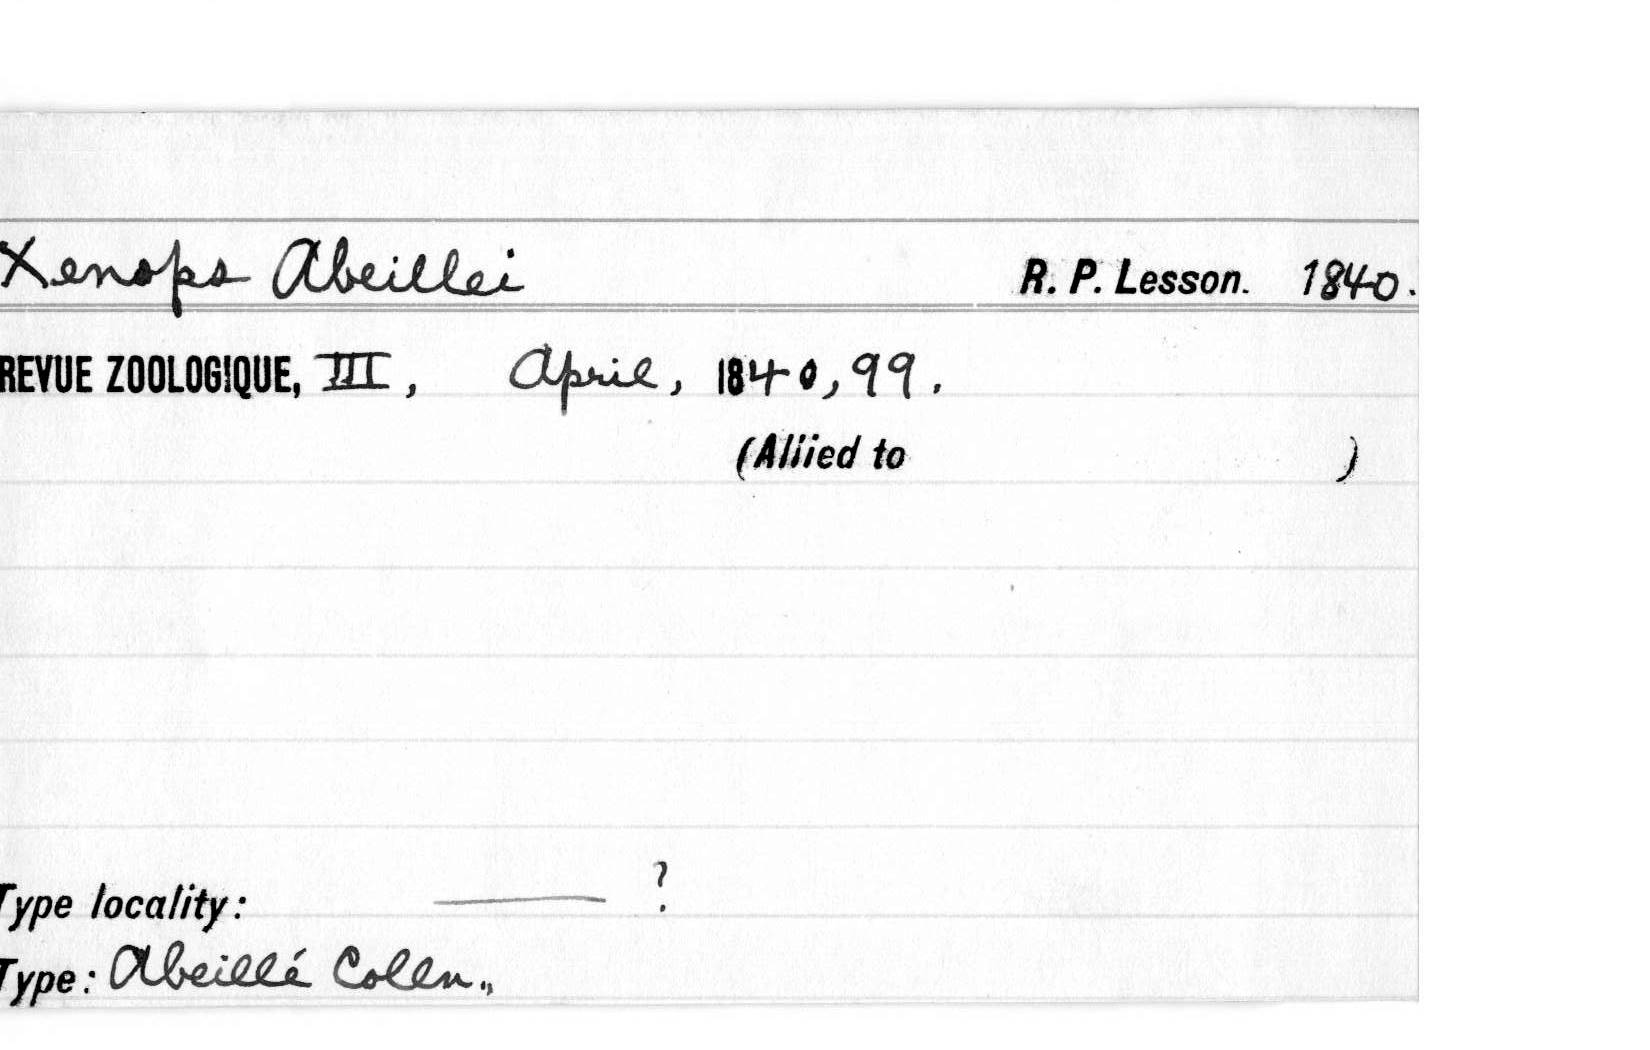 Xenops Abeillei R. P. Lesson. 1840.
REVUE ZOOLOGIQUE, III, April, 1840, 99.
(Allied to )
Type locality: —— ?
Type: Abeillé Colln.,